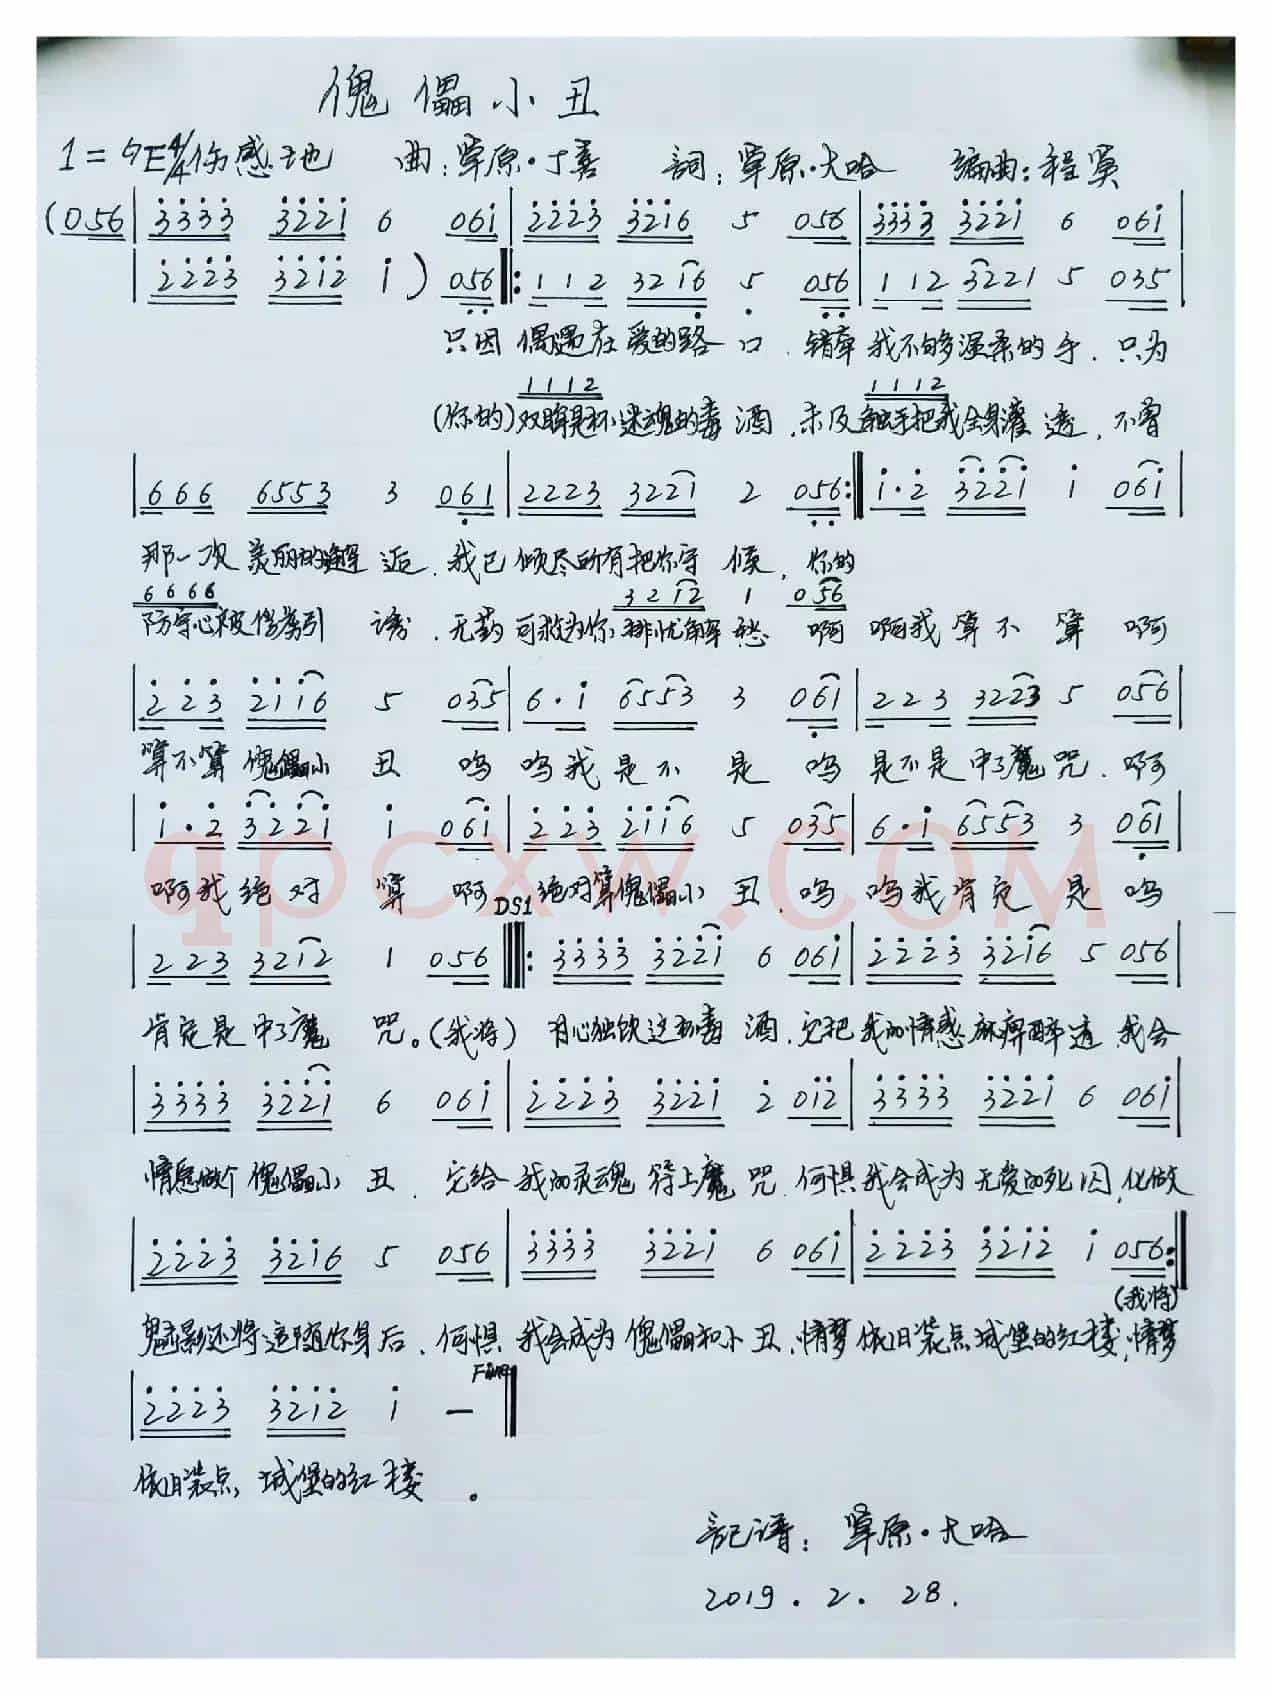 傀儡小丑
1=♭E 4/4 伤感地 曲:草原·丁喜 詞:草原·大哈 编曲:程寅
(056|3333 3221 6 061|2223 3216 5 056|3333 3221 6 061|
|2223 3212 1)056‖:112 3216 5 056|112 3221 5 035|
只因 偶遇在爱的路口.错牵我不够温柔的手.只为
1112 1112
(你的)双眸是杯迷魂的毒酒.未及触手把我全身灌透.不曾
|666 6553 3 061|2223 3221 2 056:‖1·2 3221 1 061|
那一次美丽的邂逅.我已倾尽所有把你守候,你的
6666 3212 1 056
防守心被俘掳引诱.无药可救为你排忧解愁 啊 啊我算不算 啊
|223 2116 5 035|6·1 6553 3 061|223 3223 5 056|
算不算傀儡小丑 呜 呜我是不是 呜 是不是中了魔咒.啊
|1·2 3221 1 061|223 2116 5 035|6·1 6553 3 061|
qpcxw.COM
啊我绝对算 啊 绝对算傀儡小丑.呜 呜我肯定是 呜
DS1
|223 3212 1 056‖:3333 3221 6 061|2223 3216 5 056|
肯定是中了魔咒。(我将)甘心独饮这杯毒酒.它把我的情感麻痹醉透.我会
|3333 3221 6 061|2223 3221 2 012|3333 3221 6 061|
情愿做个傀儡小丑.它给我的灵魂符上魔咒.何惧我会成为无爱的死囚,化做
|2223 3216 5 056|3333 3221 6 061|2223 3212 1 056:‖
(我将)
魅影还将追随你身后.何惧我会成为傀儡和小丑.情梦依旧装点城堡的红楼,情梦
Fine
|2223 3212 1 —‖
依旧装点城堡的红楼。
記谱:草原·大哈
2019.2.28.